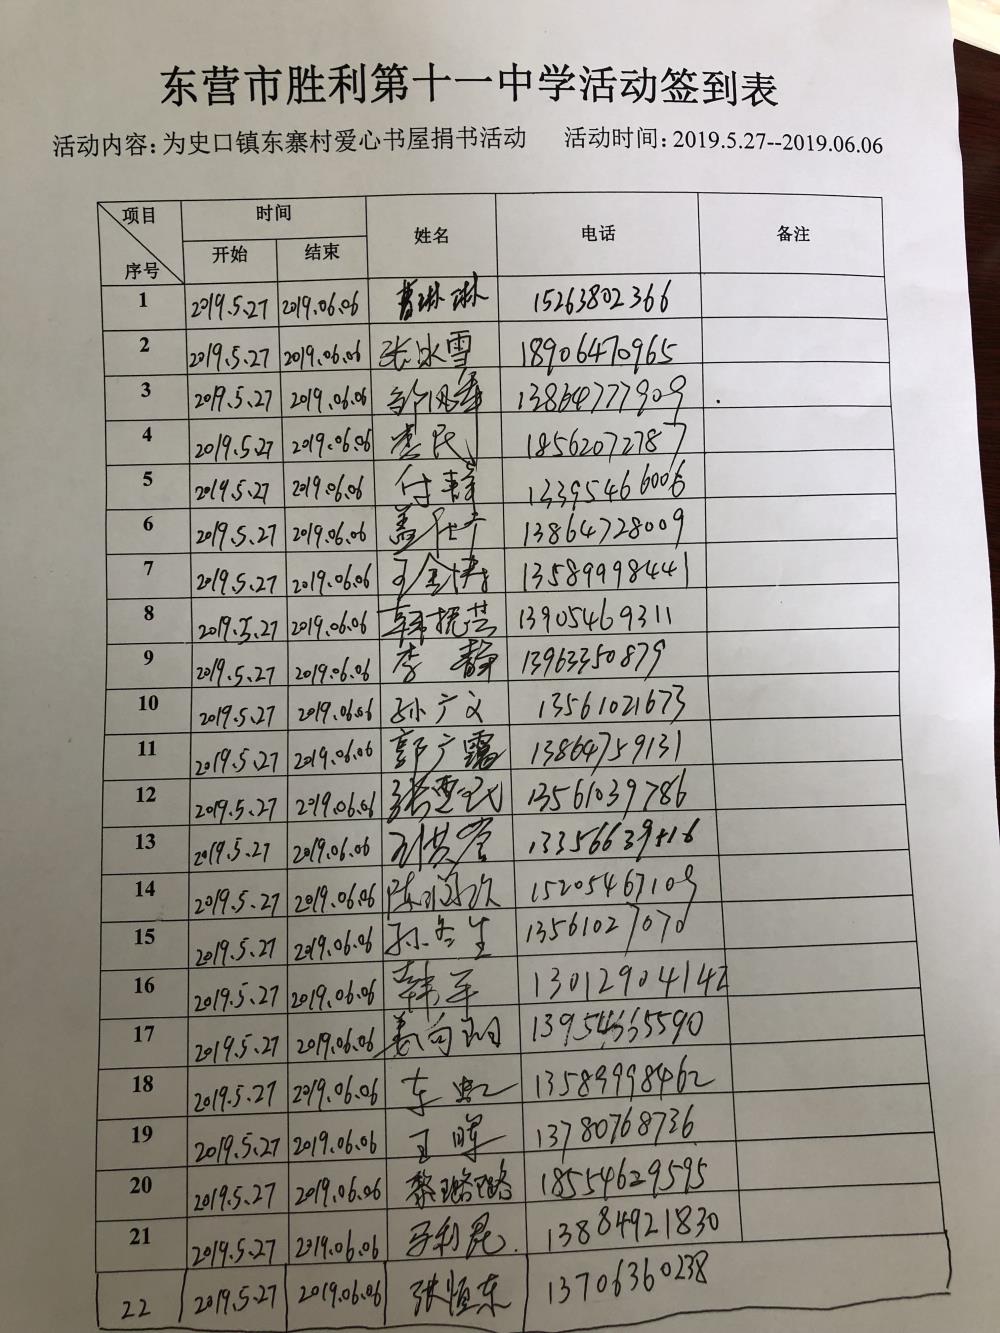 东营市胜利第十一中学活动签到表
活动内容：为史口镇东寨村爱心书屋捐书活动 活动时间：2019.5.27--2019.06.06
项目 时间 姓名 电话 备注
序号 开始 结束
1 2019.5.27 2019.06.06 曹琳琳 15263802366
2 2019.5.27 2019.06.06 张冰雪 18906470965
3 2019.5.27 2019.06.06 13864777909
4 2019.5.27 2019.06.06 18562072787
5 2019.5.27 2019.06.06 付静 13395466006
6 2019.5.27 2019.06.06 13864728009
7 2019.5.27 2019.06.06 13589998441
8 2019.5.27 2019.06.06 韩振芸 13905469311
9 2019.5.27 2019.06.06 李静 13963350879
10 2019.5.27 2019.06.06 孙广文 13561021673
11 2019.5.27 2019.06.06 郭广霞 13864759131
12 2019.5.27 2019.06.06 13561039786
13 2019.5.27 2019.06.06
14 2019.5.27 2019.06.06 15205467109
15 2019.5.27 2019.06.06 孙冬生 13561027070
16 2019.5.27 2019.06.06 韩军 13012904142
17 2019.5.27 2019.06.06 姜尚翊
18 2019.5.27 2019.06.06 车虹 13589998462
19 2019.5.27 2019.06.06 王晖 13780768736
20 2019.5.27 2019.06.06 黎璐璐 18554629595
21 2019.5.27 2019.06.06 13884921830
22 2019.5.27 2019.06.06 张恒东 13706360238